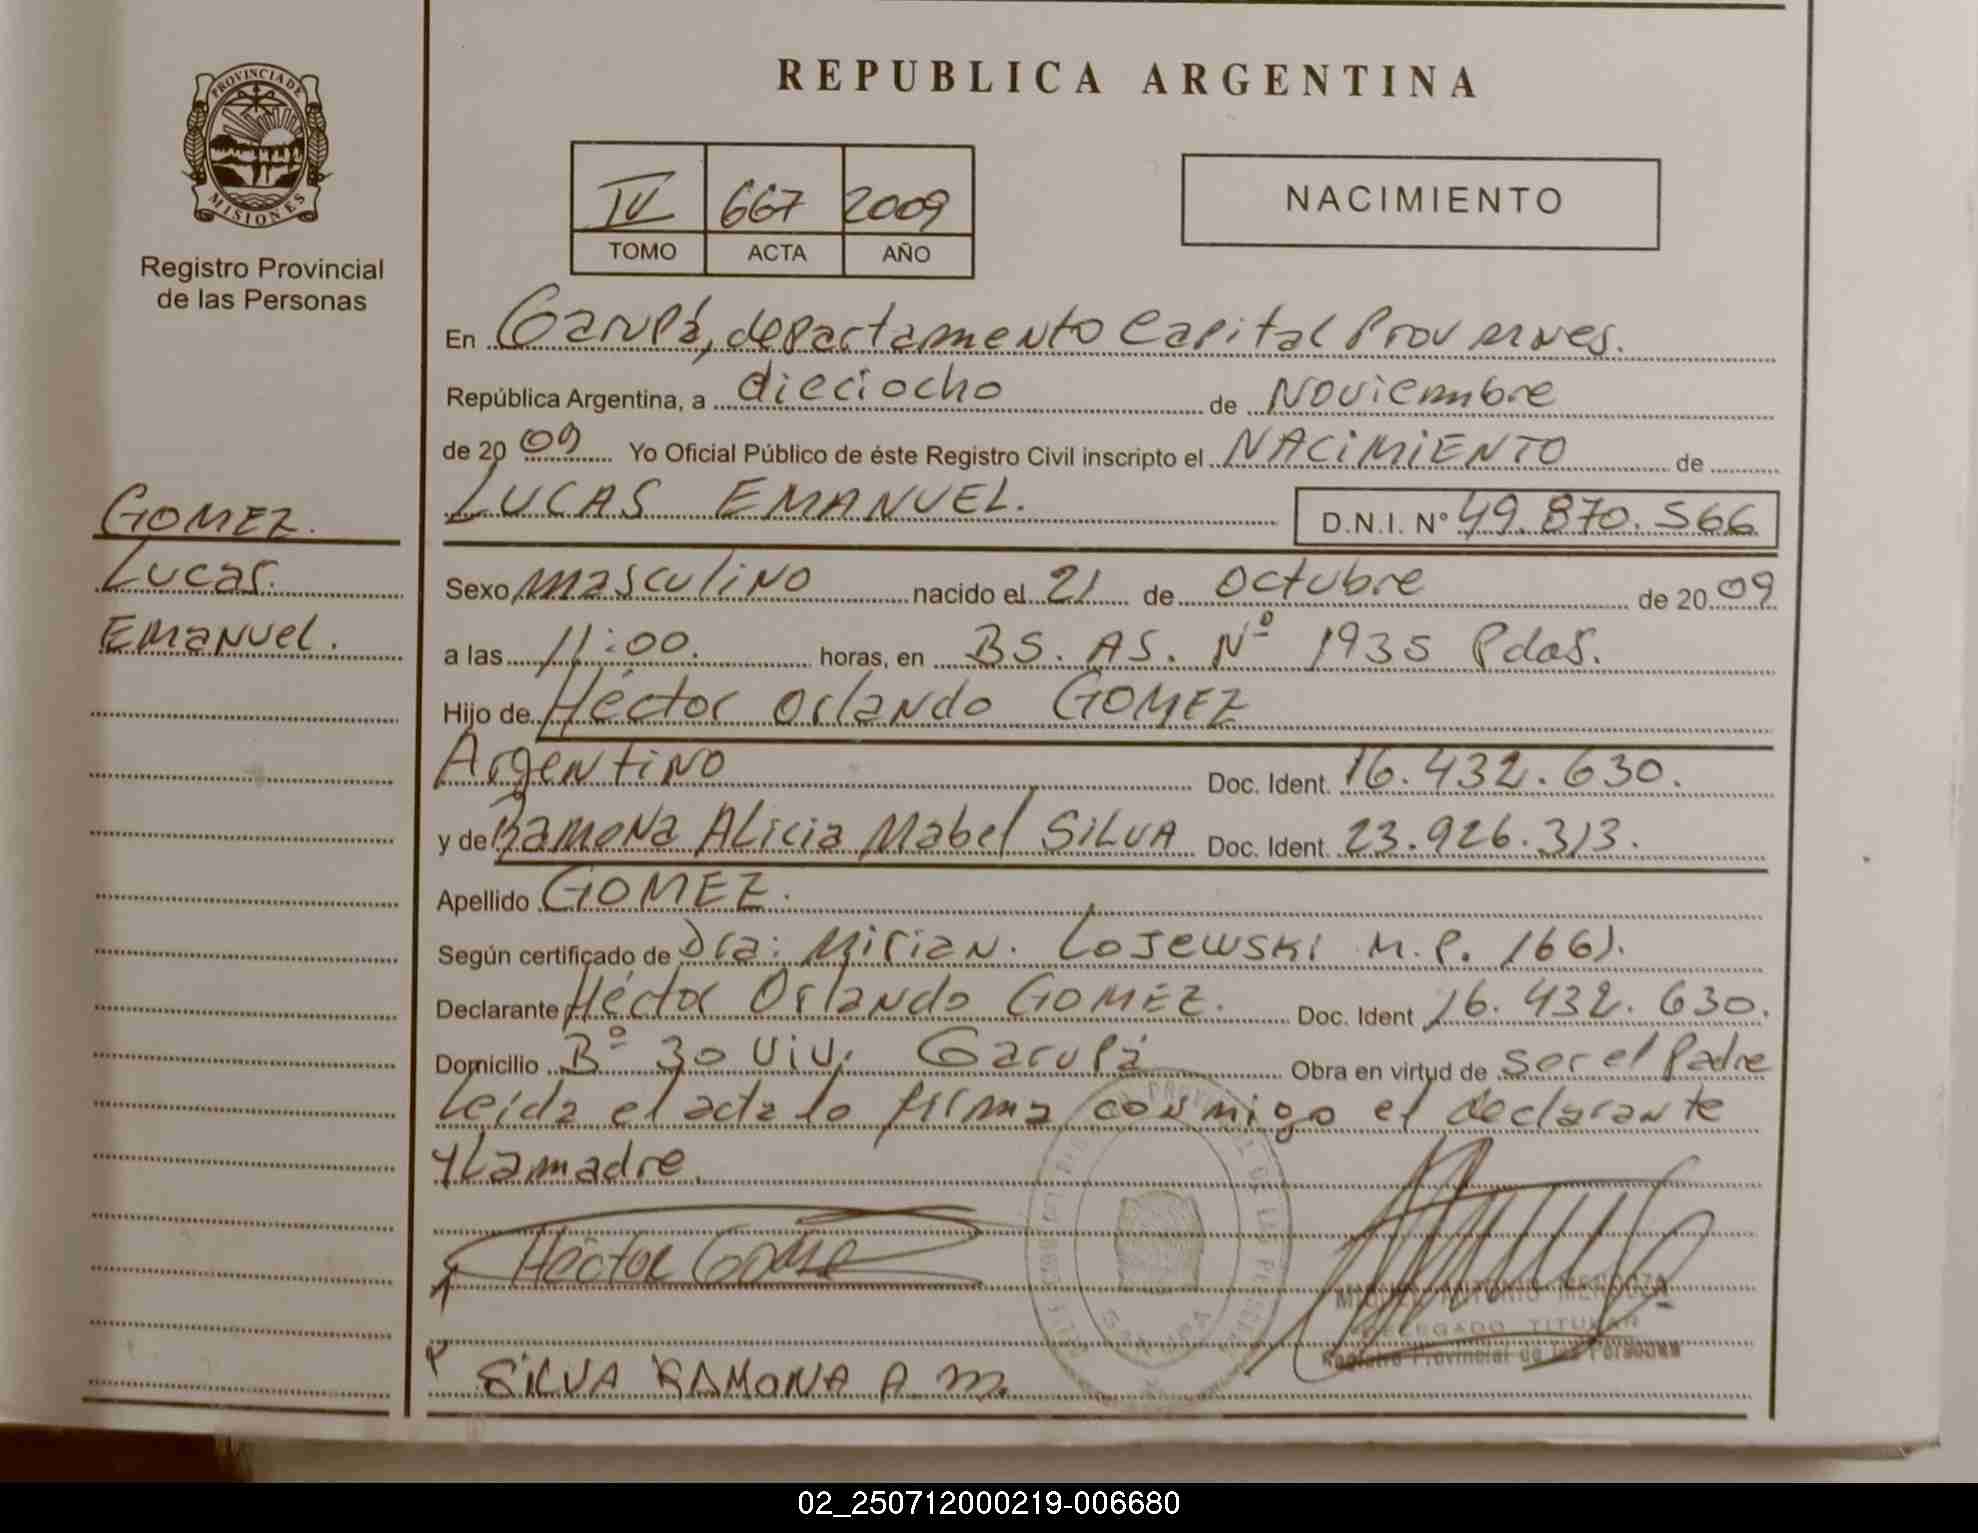 REPUBLICA ARGENTINA
PROVINCIA DE
MISIONES
Registro Provincial
de las Personas
IV 667 2009
TOMO ACTA AÑO
NACIMIENTO
En Garupá, departamento Capital Prov
República Argentina, a dieciocho de Noviembre
de 2009 Yo Oficial Público de éste Registro Civil inscripto el NACIMIENTO de
LUCAS EMANUEL. D.N.I. Nº 49.870.566
GOMEZ.
Lucas.
Emanuel.
Sexo masculino nacido el 21 de octubre de 2009
a las 11:00. horas, en BS. AS. Nº 1935 Pdas.
Hijo de Héctor Orlando GOMEZ
Argentino Doc. Ident. 16.432.630.
y de Ramona Alicia Mabel SILVA Doc. Ident. 23.926.313.
Apellido GOMEZ.
Según certificado de Dra: Mirian. Lojewski M.P. 1661.
Declarante Héctor Orlando GOMEZ. Doc. Ident 16.432.630.
Domicilio Bº 30 Viv. Garupá Obra en virtud de ser el Padre
Leída el acta lo firma conmigo el declarante
y La madre.
Héctor Gomez
SILVA RAMONA A M.
ANTONIO MENDOZA
DELEGADO TITULAR
Registro Provincial de las Personas
GARUPA
02_250712000219-006680